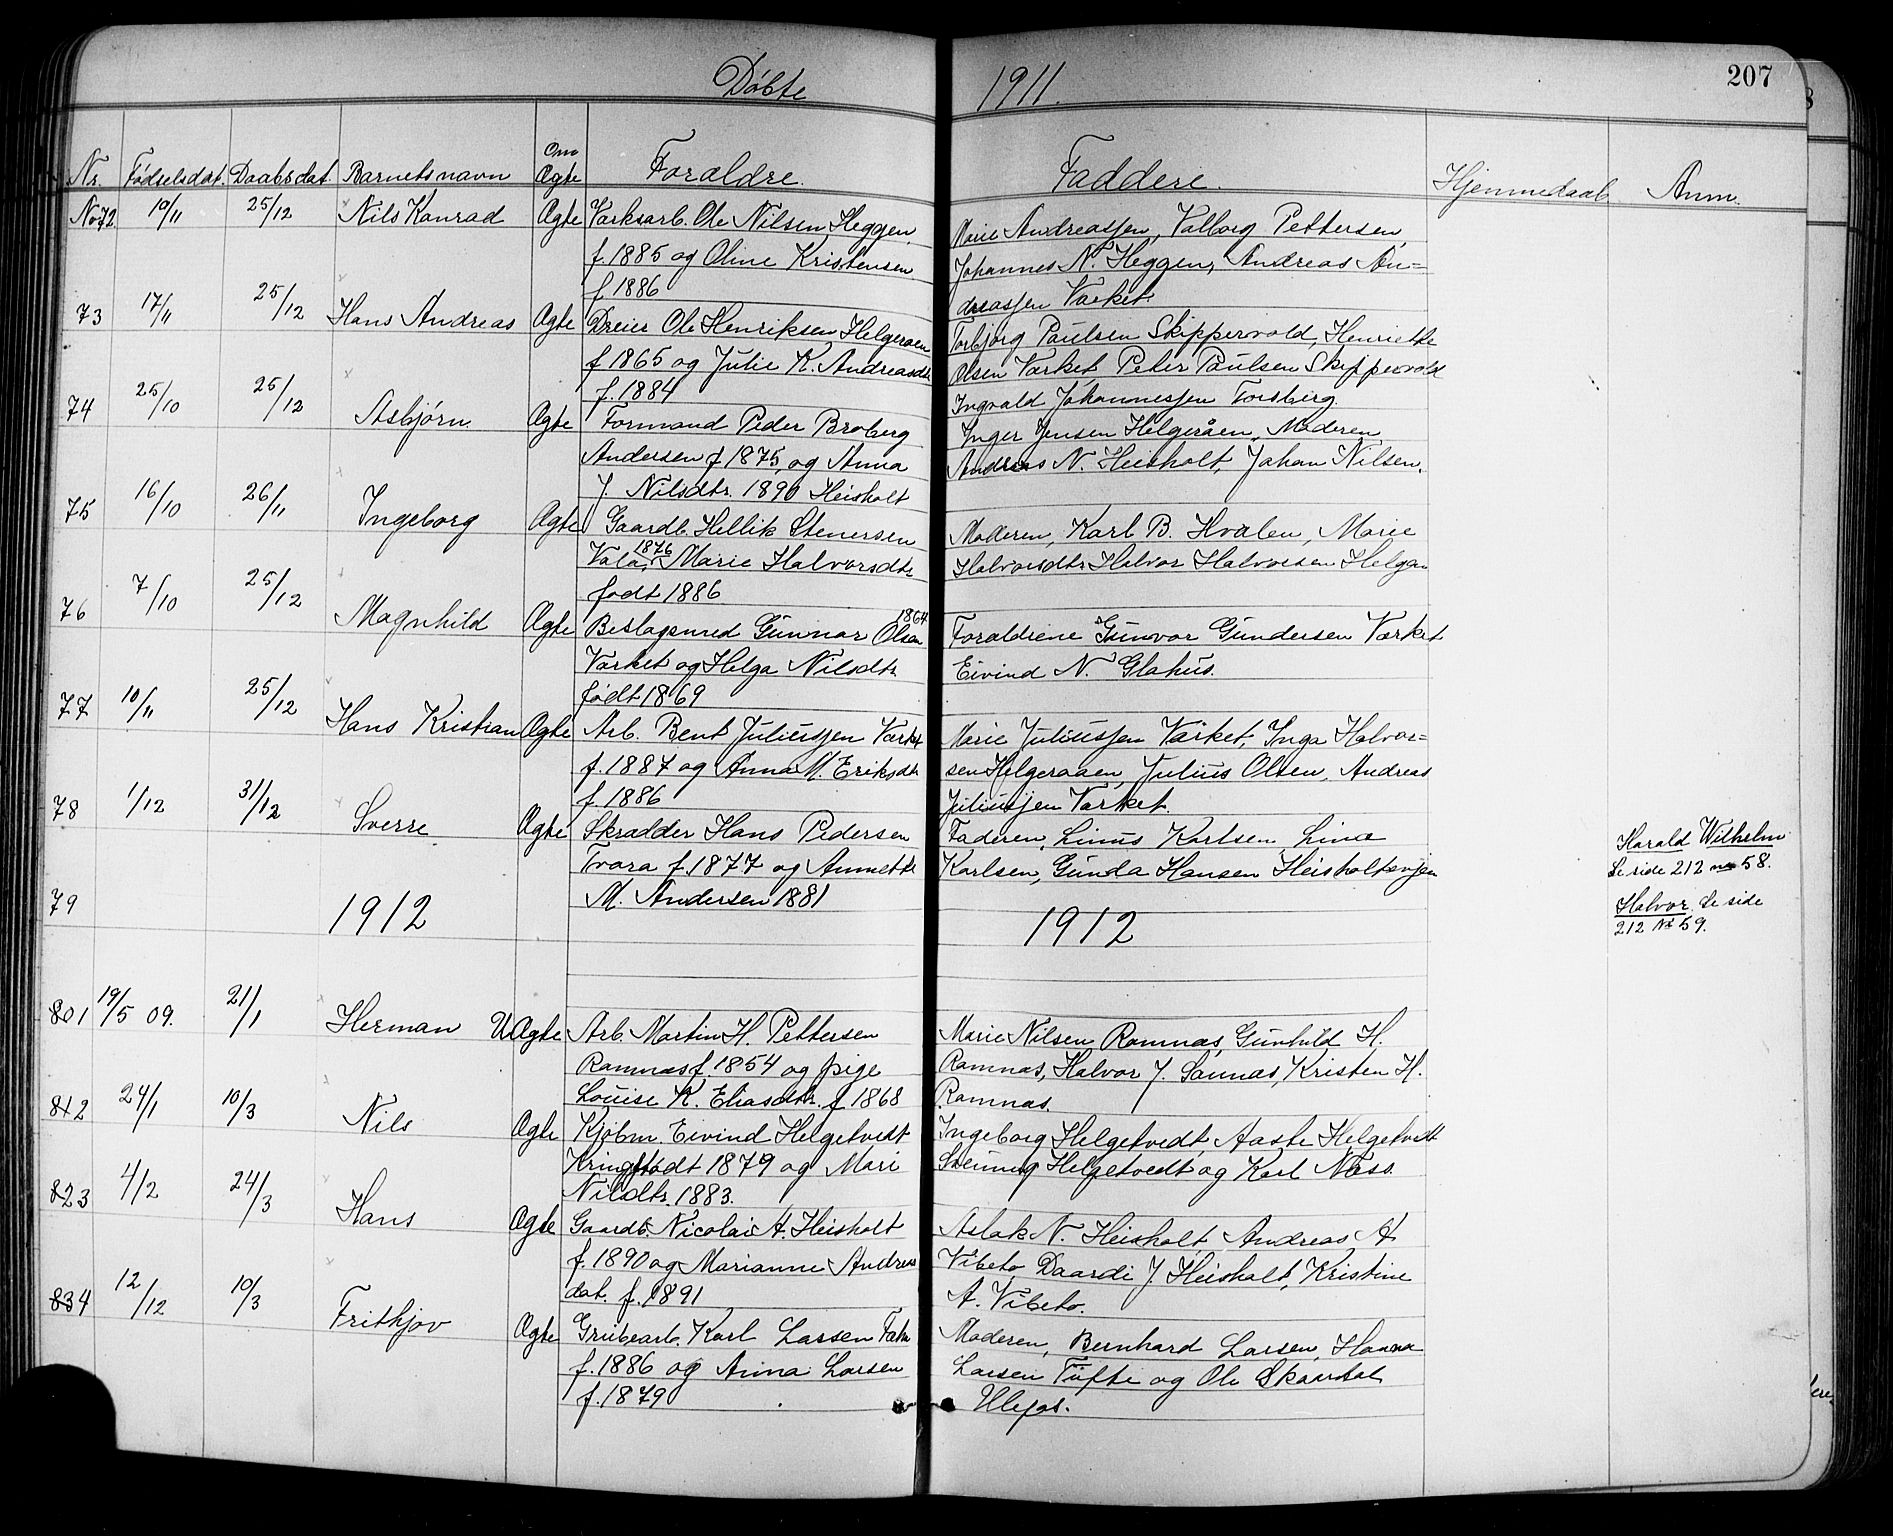 207
Døbte 1911.
Nr. Fødselsdat. Daabsdat. Barnets navn Om Ægte Forældre. Faddere. Hjemmedaab. Anm.
No 72 19/11 25/12 Nils Konrad Ægte Værksarb. Ole Nilsen Heggen
f. 1885 og Oline Kristensen
f 1886
Marie Andreassen, Valborg Pettersen,
Johannes N. Heggen, Andreas An=
dreassen Værket
73 17/11 25/12 Hans Andreas Ægte Dreier Ole Henriksen Helgeraaen
f 1865 og Julie K. Andreasdtr.
f. 1884
Torbjørg Paulsen Skippervold, Henriette
Olsen Værket Peter Paulsen Skippervold
Ingvald Johannessen Forsberg.
74 25/10 25/12 Asbjørn Ægte Formand Peder Broberg
Andersen f 1875, og Anna
J. Nilsdtr. 1890 Heisholt
Inger Jensen Helgeråen, Moderen,
Andreas N. Heisholt, Johan Nilsen.
75 16/10 26/11 Ingeborg Ægte Gaardb. Hellik Stenersen
Vala, 1876 Marie Halvorsdtr
født 1886
Moderen, Karl B. Hvalen, Marie
Halvorsdtr Halvor Halvorsen Helgen
76 7/10 25/12 Magnhild Ægte Beslagsmed Gunnar Olsen 1864
Værket og Helga Nilsdtr.
født 1869
Forældrene Gunvor Gundersen Værket
Eivind N. Glahus.
77 10/11 25/12 Hans Kristian Ægte Arb. Bent Juliussen Værket
f. 1887 og Anna M. Eriksdtr
f. 1886
Marie Juliussen Værket, Inga Halvor=
sen Helgeraaen, Julius Olsen, Andreas
Juliussen Værket.
78 1/12 31/12 Sverre Ægte Skrædder Hans Pedersen
Tvara f. 1877 og Annette
M. Andersen 1881
Faderen, Linus Karlsen, Lina
Karlsen, Gunda Hansen Heisholteien
Harald Wilhelm
Se side 212 no 58.
79
Halvor. Se side
212 No 59.
1912 1912
801 19/5 09. 21/1 Herman UÆgte Arb. Martin H. Pettersen
Ramnæs f. 1854 og pige
Louise K. Eliasdtr. f 1868
Marie Nilsen Ramnæs, Gunhild H.
Ramnæs, Halvor J. Sannæs, Kristen H.
Ramnæs.
812 24/1 10/3 Nils Ægte Kjøbm. Eivind Helgetvedt
Kring født 1879 og Mari
Nilsdtr. 1883.
Ingeborg Helgetvedt, Aaste Helgetvedt
Sveinung Helgetvedt og Karl Næss.
823 4/2 24/3 Hans Ægte Gaardb. Nicolai A. Heisholt
f. 1890 og Marianne Andreas
dat. f. 1891
Aslak N. Heisholt, Andreas A
Vibeto Daardi J. Heisholt, Kristine
A. Vibeto.
834 12/12 10/3 Frithjov Ægte Grubearb. Karl Larsen
f. 1886 og Anna Larsen
f. 1879
Moderen, Bernhard Larsen, Hanna
Larsen Tufte og Ole Skaardal
Ulefos.